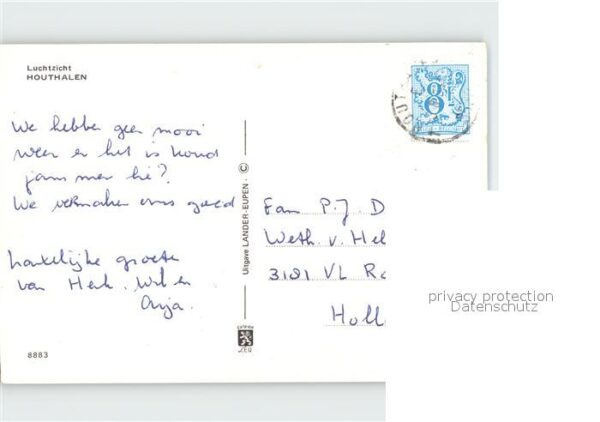 Luchtzicht
HOUTHALEN
We hebben geen mooi
weer en het is koud
jammer hé?
We vermaken ons goed
hartelijke groeten
van Henk. Wil en
Anja.
8883
Uitgave LANDER-EUPEN - ©
8F
Fam P.J. D
Weth. v. Hel
3181 VL Ro
Holl
privacy protection
Datenschutz